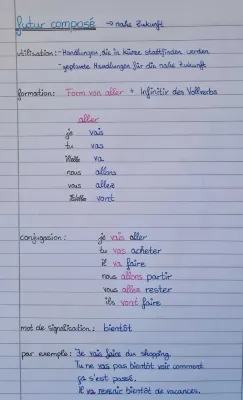 futur composé → nahe Zukunft
utilisation: - Handlungen, die in kürze stattfinden werden
- geplante Handlungen für die nahe Zukunft
formation: Form von aller + Infinitiv des Vollverbs
aller
je vais
tu vas
il/elle va
nous allons
vous allez
ils/elles vont
conjugaison: je vais aller
tu vas acheter
il va faire
nous allons partir
vous allez rester
ils vont faire
mot de signalisation: bientôt
par exemple: Je vais faire du shopping.
Tu ne vas pas bientôt voir comment
ça s'est passé.
Il va revenir bientôt de vacances.